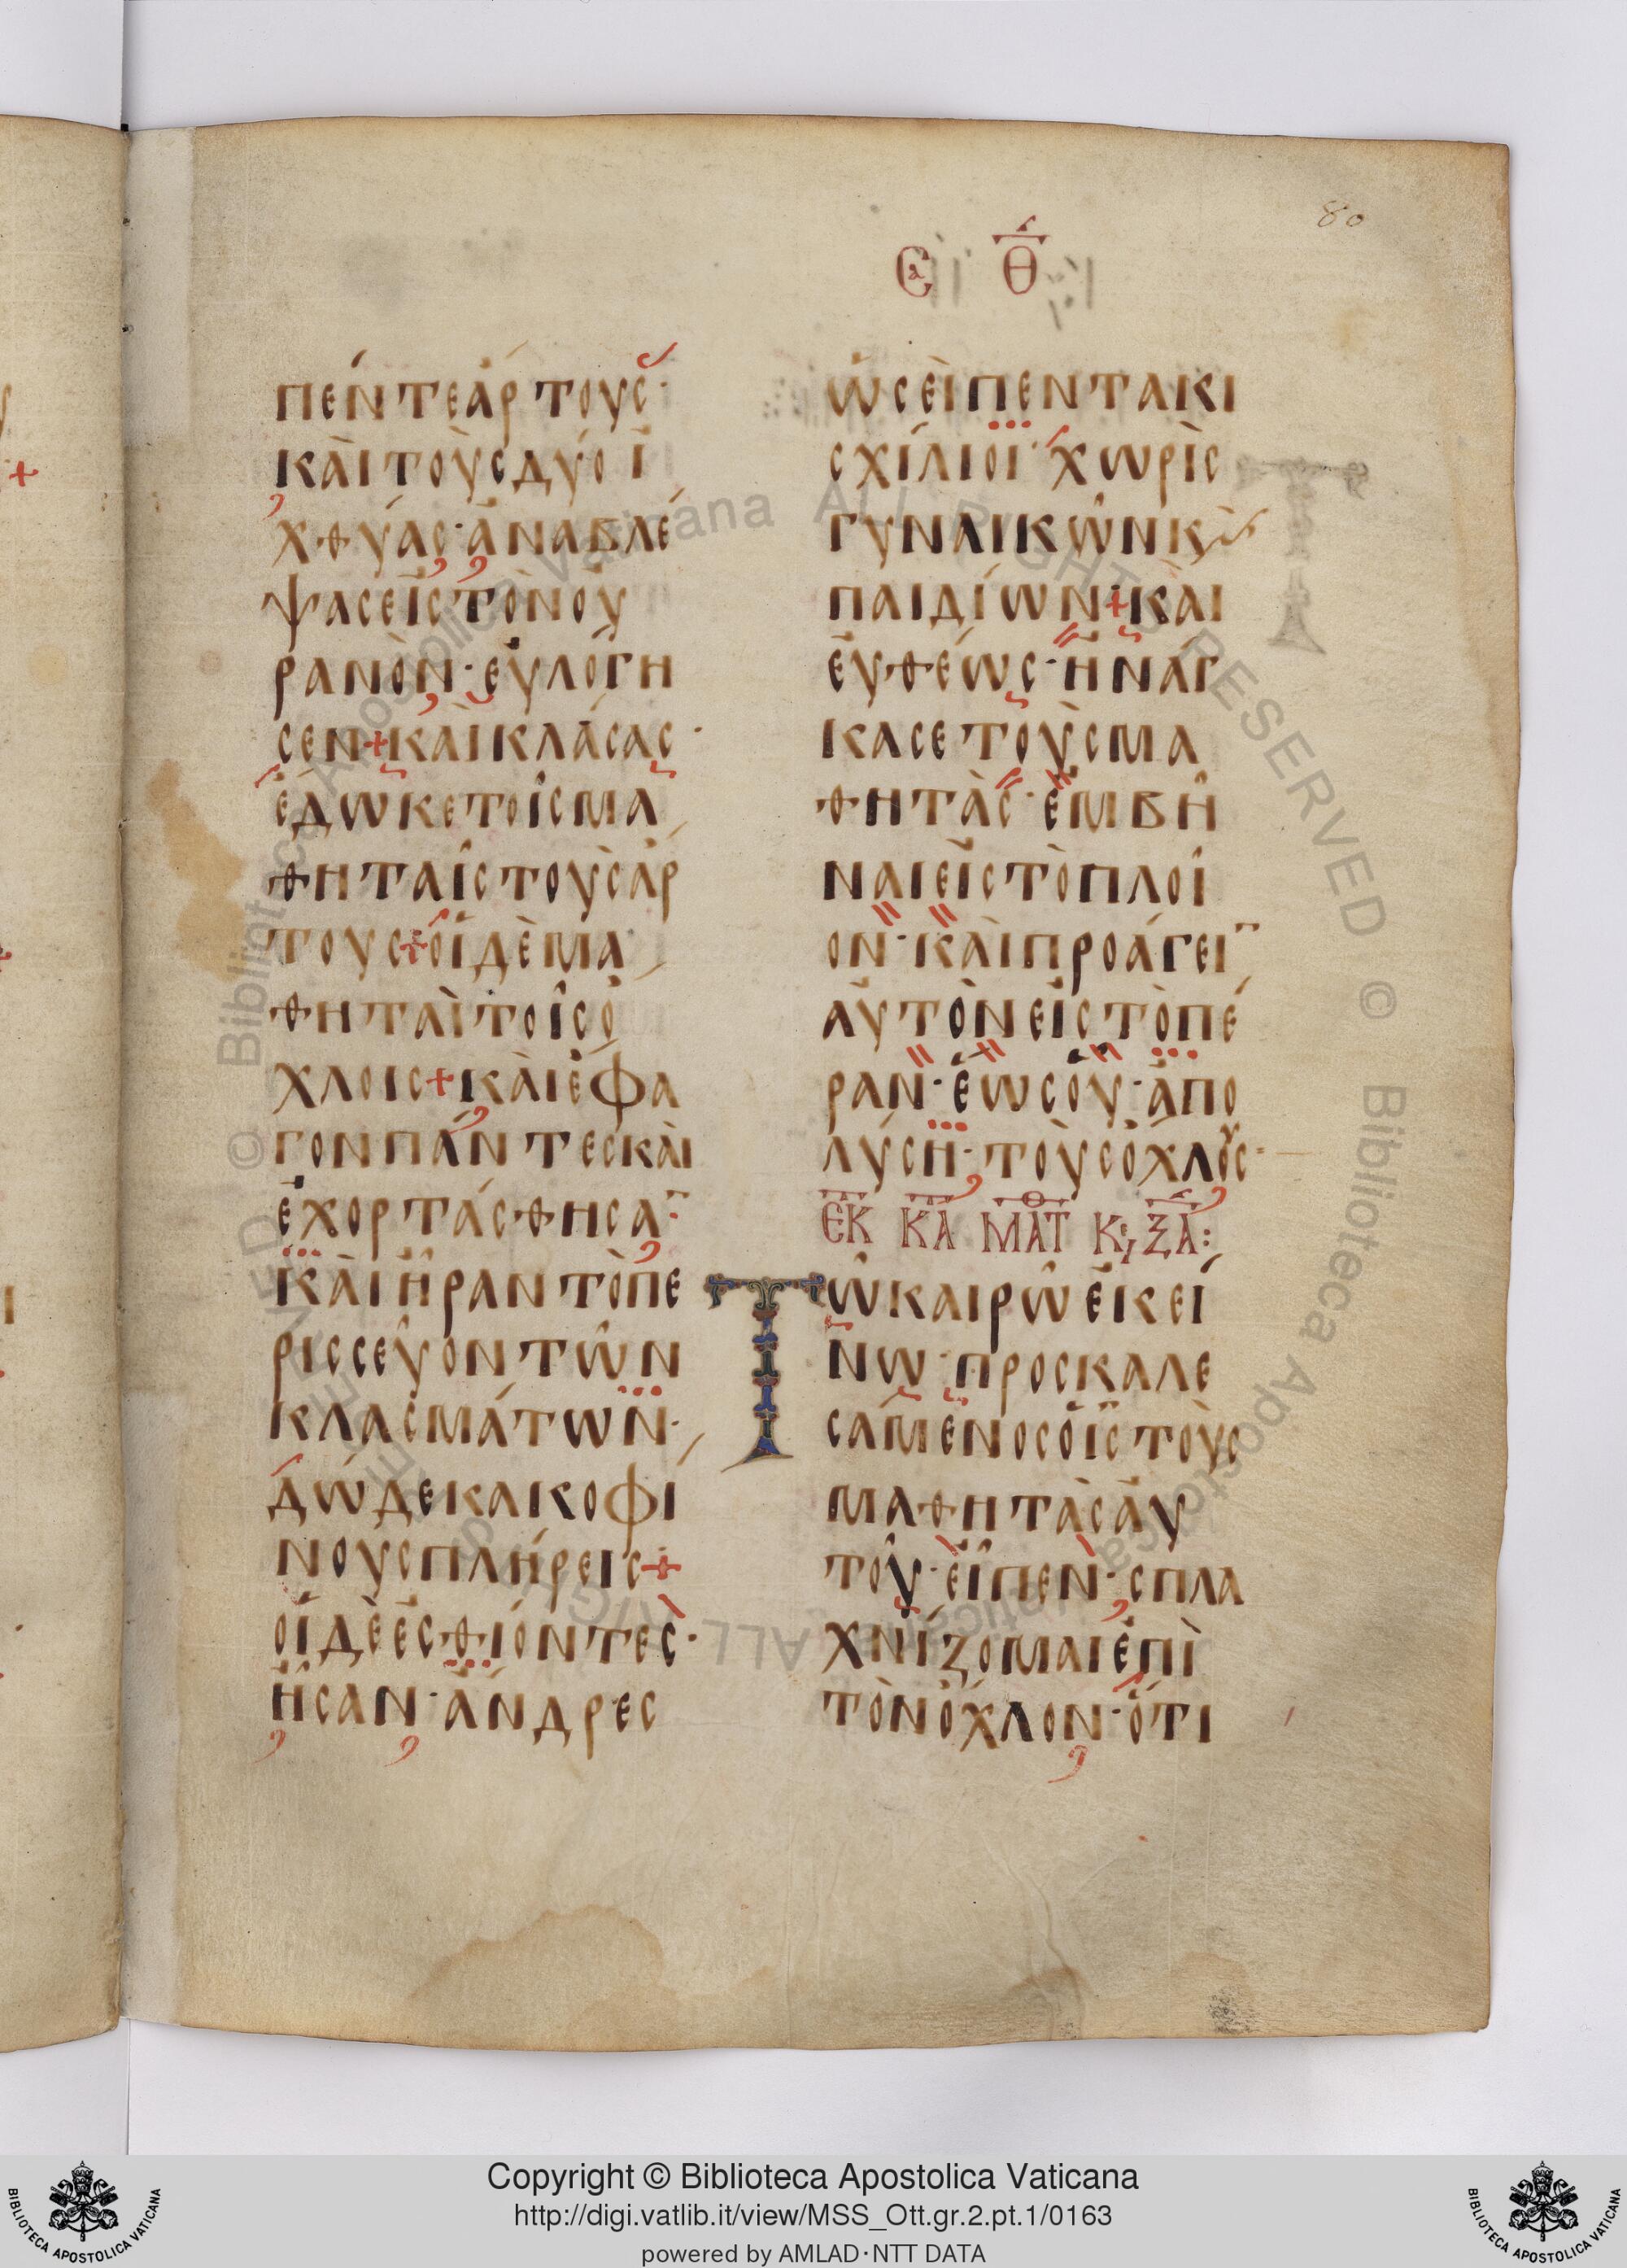 80
Сα Θ
πέντε ἄρτους·
καὶ τοὺς δύο ἰ
χθύας· ἀναβλέ
ψας εἰς τὸν οὐ
ρανὸν· εὐλόγη
σεν + καὶ κλάσας·
ἔδωκε τοῖς μα
θηταῖς τοὺς ἄρ
τους + οἱ δὲ μα
θηταὶ τοῖς ὄ
χλοις + καὶ ἔφα
γον πάντες καὶ
ἐχορτάσθησα ̅:
καὶ ἦραν τὸ πε
ρισσεῦον τῶν
κλασμάτων·
δώδεκα κοφί
νους πλήρεις +
οἱ δὲ ἐσθίοντες·
ἦσαν· ἄνδρες
ὡσεὶ πεντακι
σχίλιοι· χωρὶς
γυναικῶν κ̀
παιδίων + καὶ
εὐθέως· ἠνάγ
κασε τοὺς μα
θητὰς· ἐμβῆ
ναι εἰς τὸ πλοῖ
ον· καὶ προάγει ̅
αὐτὸν εἰς τὸ πέ
ραν· ἕως οὗ· ἀπο
λύσῃ· τοὺς ὄχλους·
ΕΚ ΚΑ ΜΑΤ Κ, ΞΑ:
Τῶ καιρῶ ἐκεί
νω· προσκαλε
σάμενος ὁ ῑς τοὺς
μαθητὰς αὐ
τοῦ· εἶπεν· σπλα
χνίζομαι ἐπὶ
τὸν ὄχλον· ὅτι
Copyright © Biblioteca Apostolica Vaticana
http://digi.vatlib.it/view/MSS_Ott.gr.2.pt.1/0163
powered by AMLAD·NTT DATA
BIBLIOTECA APOSTOLICA VATICANA
BIBLIOTECA APOSTOLICA VATICANA